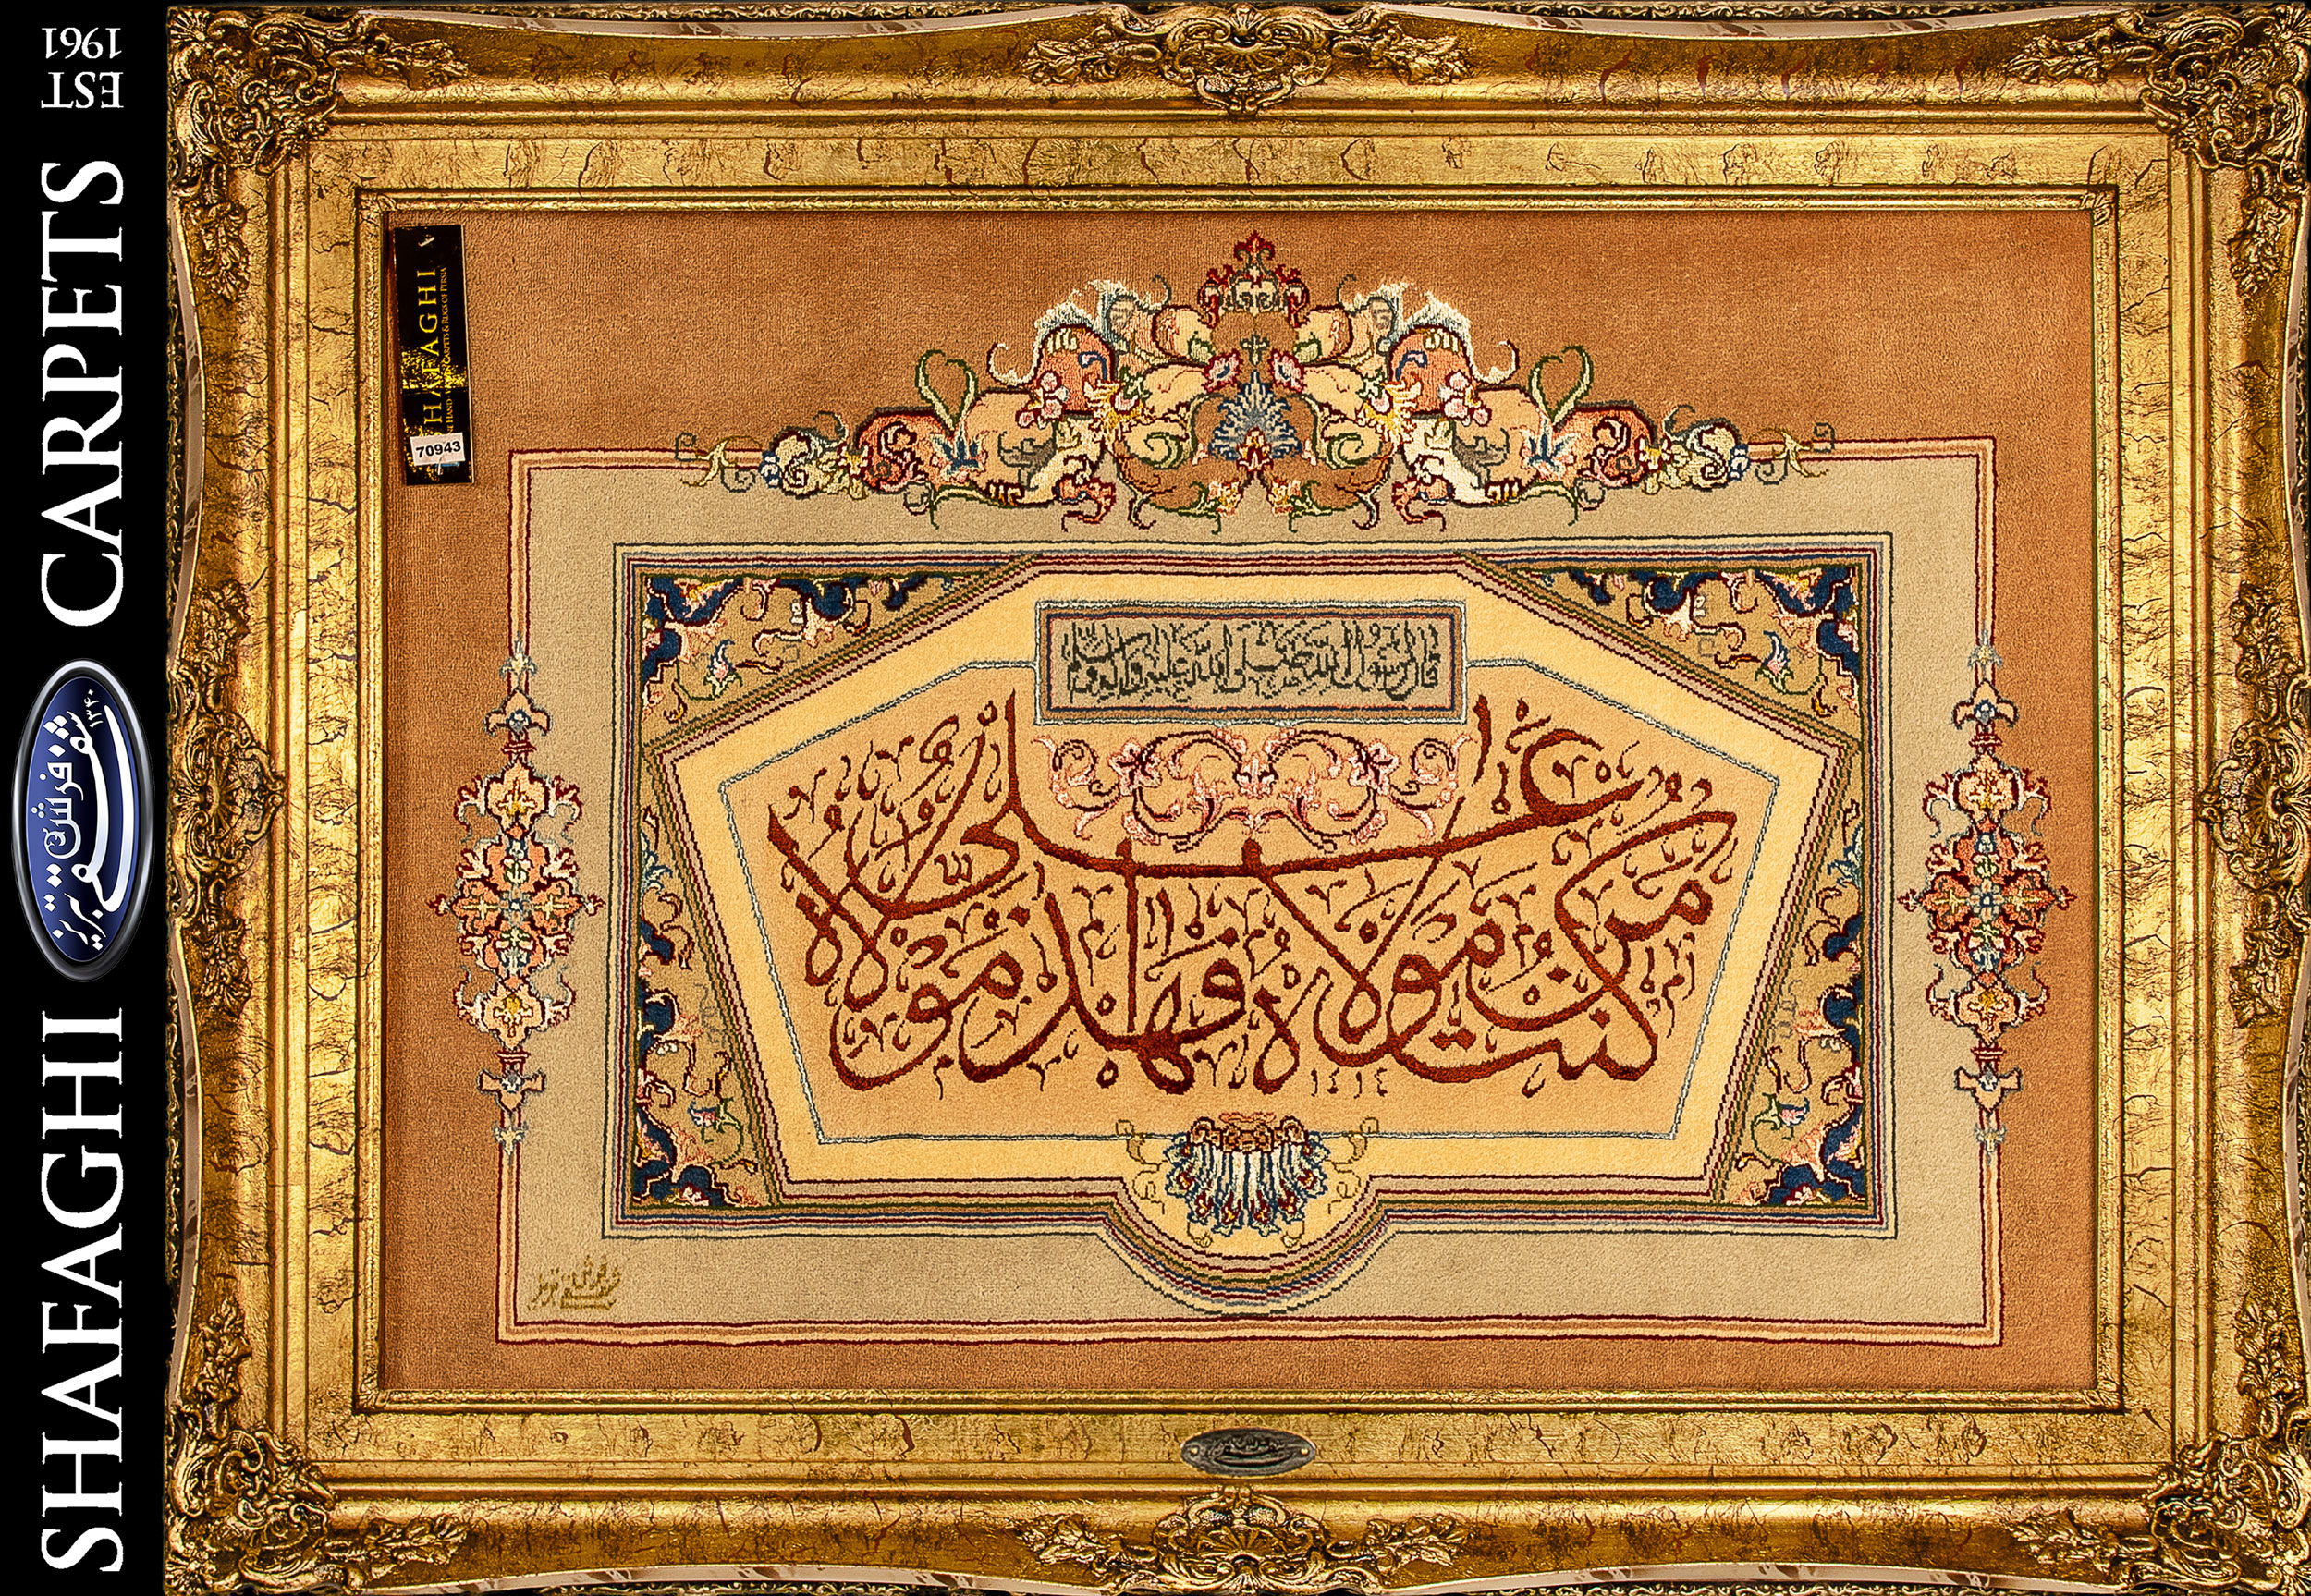 SHAFAGHI CARPETS
EST
1961
فرش شفقی تبریز
۱۳۴۰
SHAFAGHI
HAND CARPETS & RUGS OF PERSIA
70943
قال رسول الله صلی الله علیه و آله
من كنت مولاه فهذا علی مولاه
١٤١٤
فرش شفقی تبریز